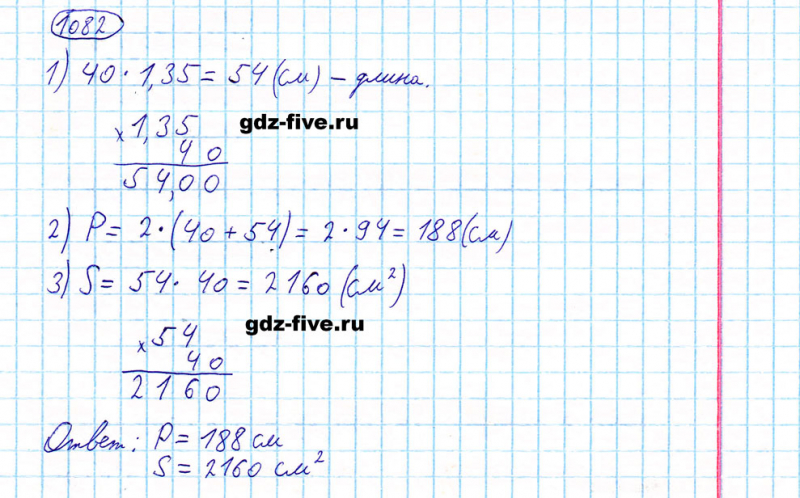 1082
1) 40 · 1,35 = 54 (см) – длина.
× 1,35
40
54,00
gdz-five.ru
2) P = 2 · (40 + 54) = 2 · 94 = 188 (см)
3) S = 54 · 40 = 2160 (см²)
gdz-five.ru
× 54
40
2160
Ответ: P = 188 см
S = 2160 см²